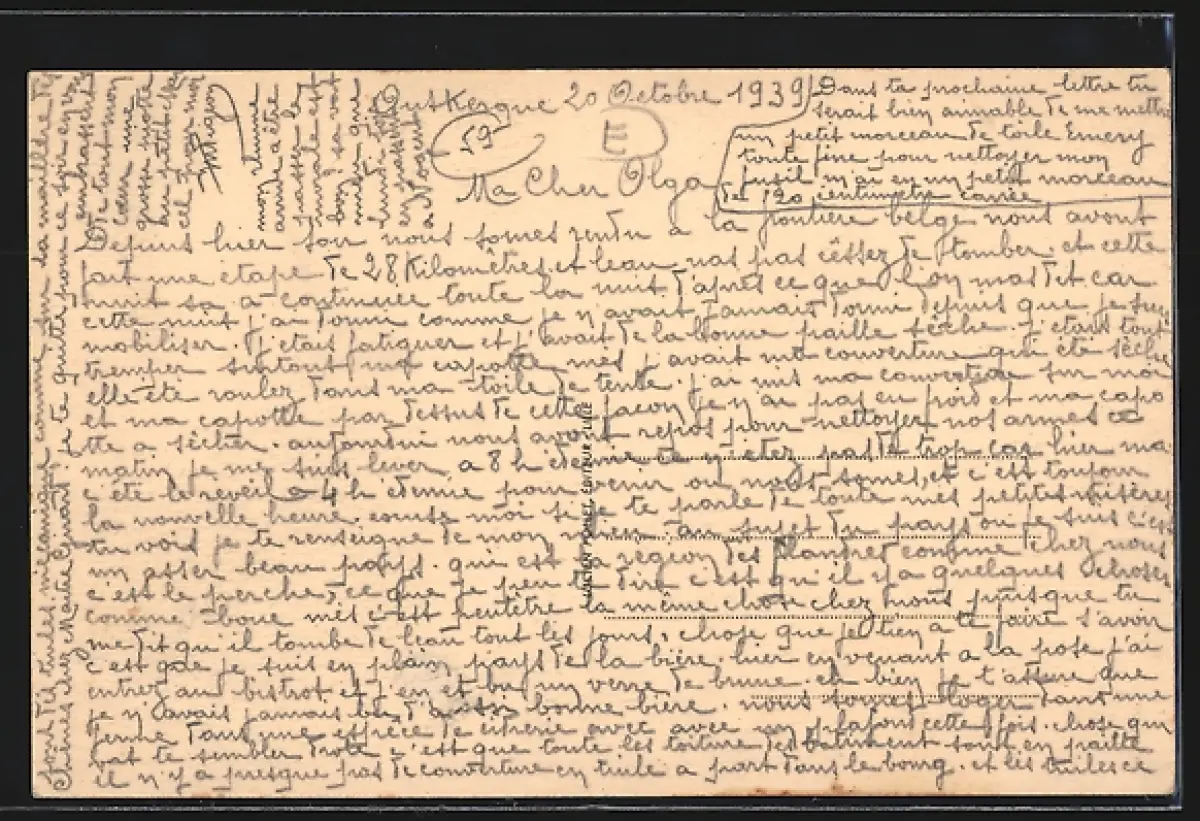 Dunkerque 20 Octobre 1939
59
E
Ma Cher Olga
Dans ta prochaine lettre tu
serait bien aimable de me mettre
un petit morceau de toile Emery
toute fine pour nettoyer mon
fusil m'ai en un petit morceau
de 20 centimetre carrée
Depuis hier soir nous somes rendu a la frontière belge nous avont
fait une etape de 28 Kilomètres et leau nas pas cêssez de tomber. et cette
nuit sa a continuee toute la nuit d'apres ce que l'on mas dit car
cette nuit j'ai dormi comme je n'avait jamais dormi depuis que je sui
mobiliser. j'étais fatiguer et j'avait de la bonne paille sêche. j'étais tout
tremper surtout ma capotte mes j'avait ma couverture qui été sèche
elle été roulez dans ma toile de tente. j'ai mis ma couverture sur moi
et ma capotte par dessus de cette façon je n'ai pas eu froid et ma capo
tte a sècher. aujourdui nous avont repos pour nettoyer nos armes ce
matin je me suis lever a 8 h edemie ce n'étez pas de trop car hier ma
c'été le reveil a 4 h edemie pour venir ou nous somes, et c'est toujour
la nouvelle heure. excuse moi si je te parle de toute mes petites misères
tu vois je te renseigne de mon mieu. au sujet du pays ou je suis c'est
un asser beau pays. qui est la regeon des Flandres comme chez nous
c'est le perche, ce que je peu te dire c'est qu'il y a quelques choses
comme boue mes c'est peutêtre la même chose chez nous puisque tu
me dit qu'il tombe de leau tout les jours, chose que je tien a te faire s'avoir
c'est que je suis en plain pays de la bière. hier en venant a la pose j'ai
entrez au bistrot et j'en et bu un verre de brune. eh bien je t'assure que
je n'avais jamais bu d'asser bonne bière. nous somes loger dans une
ferme dans une espèce de cirerie avec avec un plafond cette fois. chose qui
vat te sembler drole c'est que toute les toiture des batiment sont en paille
il n'y a presque pas de couverture en tuile a part dans le bourg. et les tuiles ce
sont des tuiles mécanique comme sur la maille
je te quitte pour ce soir en vous
embrassent
de tout mon
cœur une
grosse
mon rhume
arrive a être
passer le
morale est
bon
LUCIEN POLLET, ÉDITEUR, LILLE